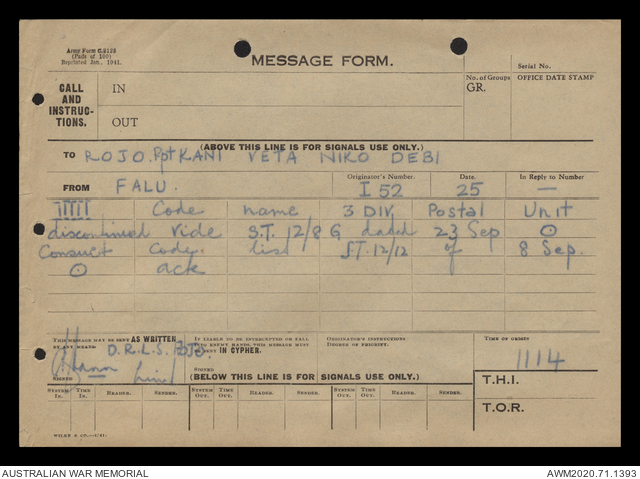 Army Form C.2128
(Pads of 100)
Reprinted Jan., 1941.
MESSAGE FORM.
Serial No.
CALL AND INSTRUC-TIONS.
IN
OUT
No. of Groups
GR.
OFFICE DATE STAMP
(ABOVE THIS LINE IS FOR SIGNALS USE ONLY.)
TO ROJO. Rpt KANI VETA NIKO DEBI
FROM FALU.
Originator's Number.
I 52
Date.
25
In Reply to Number
—
Code name 3 DIV Postal Unit
discontinued vide S.T. 12/8 G dated 23 Sep ⊙
Consult Code list ST. 12/12 of 8 Sep.
⊙ ack
THIS MESSAGE MAY BE SENT AS WRITTEN
BY ANY MEANS.
D.R.L.S.
SIGNED
IF LIABLE TO BE INTERCEPTED OR FALL
INTO ENEMY HANDS, THIS MESSAGE MUST
BE SENT IN CIPHER.
SIGNED
ORIGINATOR'S INSTRUCTIONS
DEGREE OF PRIORITY.
TIME OF ORIGIN
1114
(BELOW THIS LINE IS FOR SIGNALS USE ONLY.)
T.H.I.
SYSTEM IN. TIME IN. READER. SENDER. SYSTEM OUT. TIME OUT. READER. SENDER. SYSTEM OUT. TIME OUT. READER. SENDER.
T.O.R.
AUSTRALIAN WAR MEMORIAL
AWM2020.71.1393